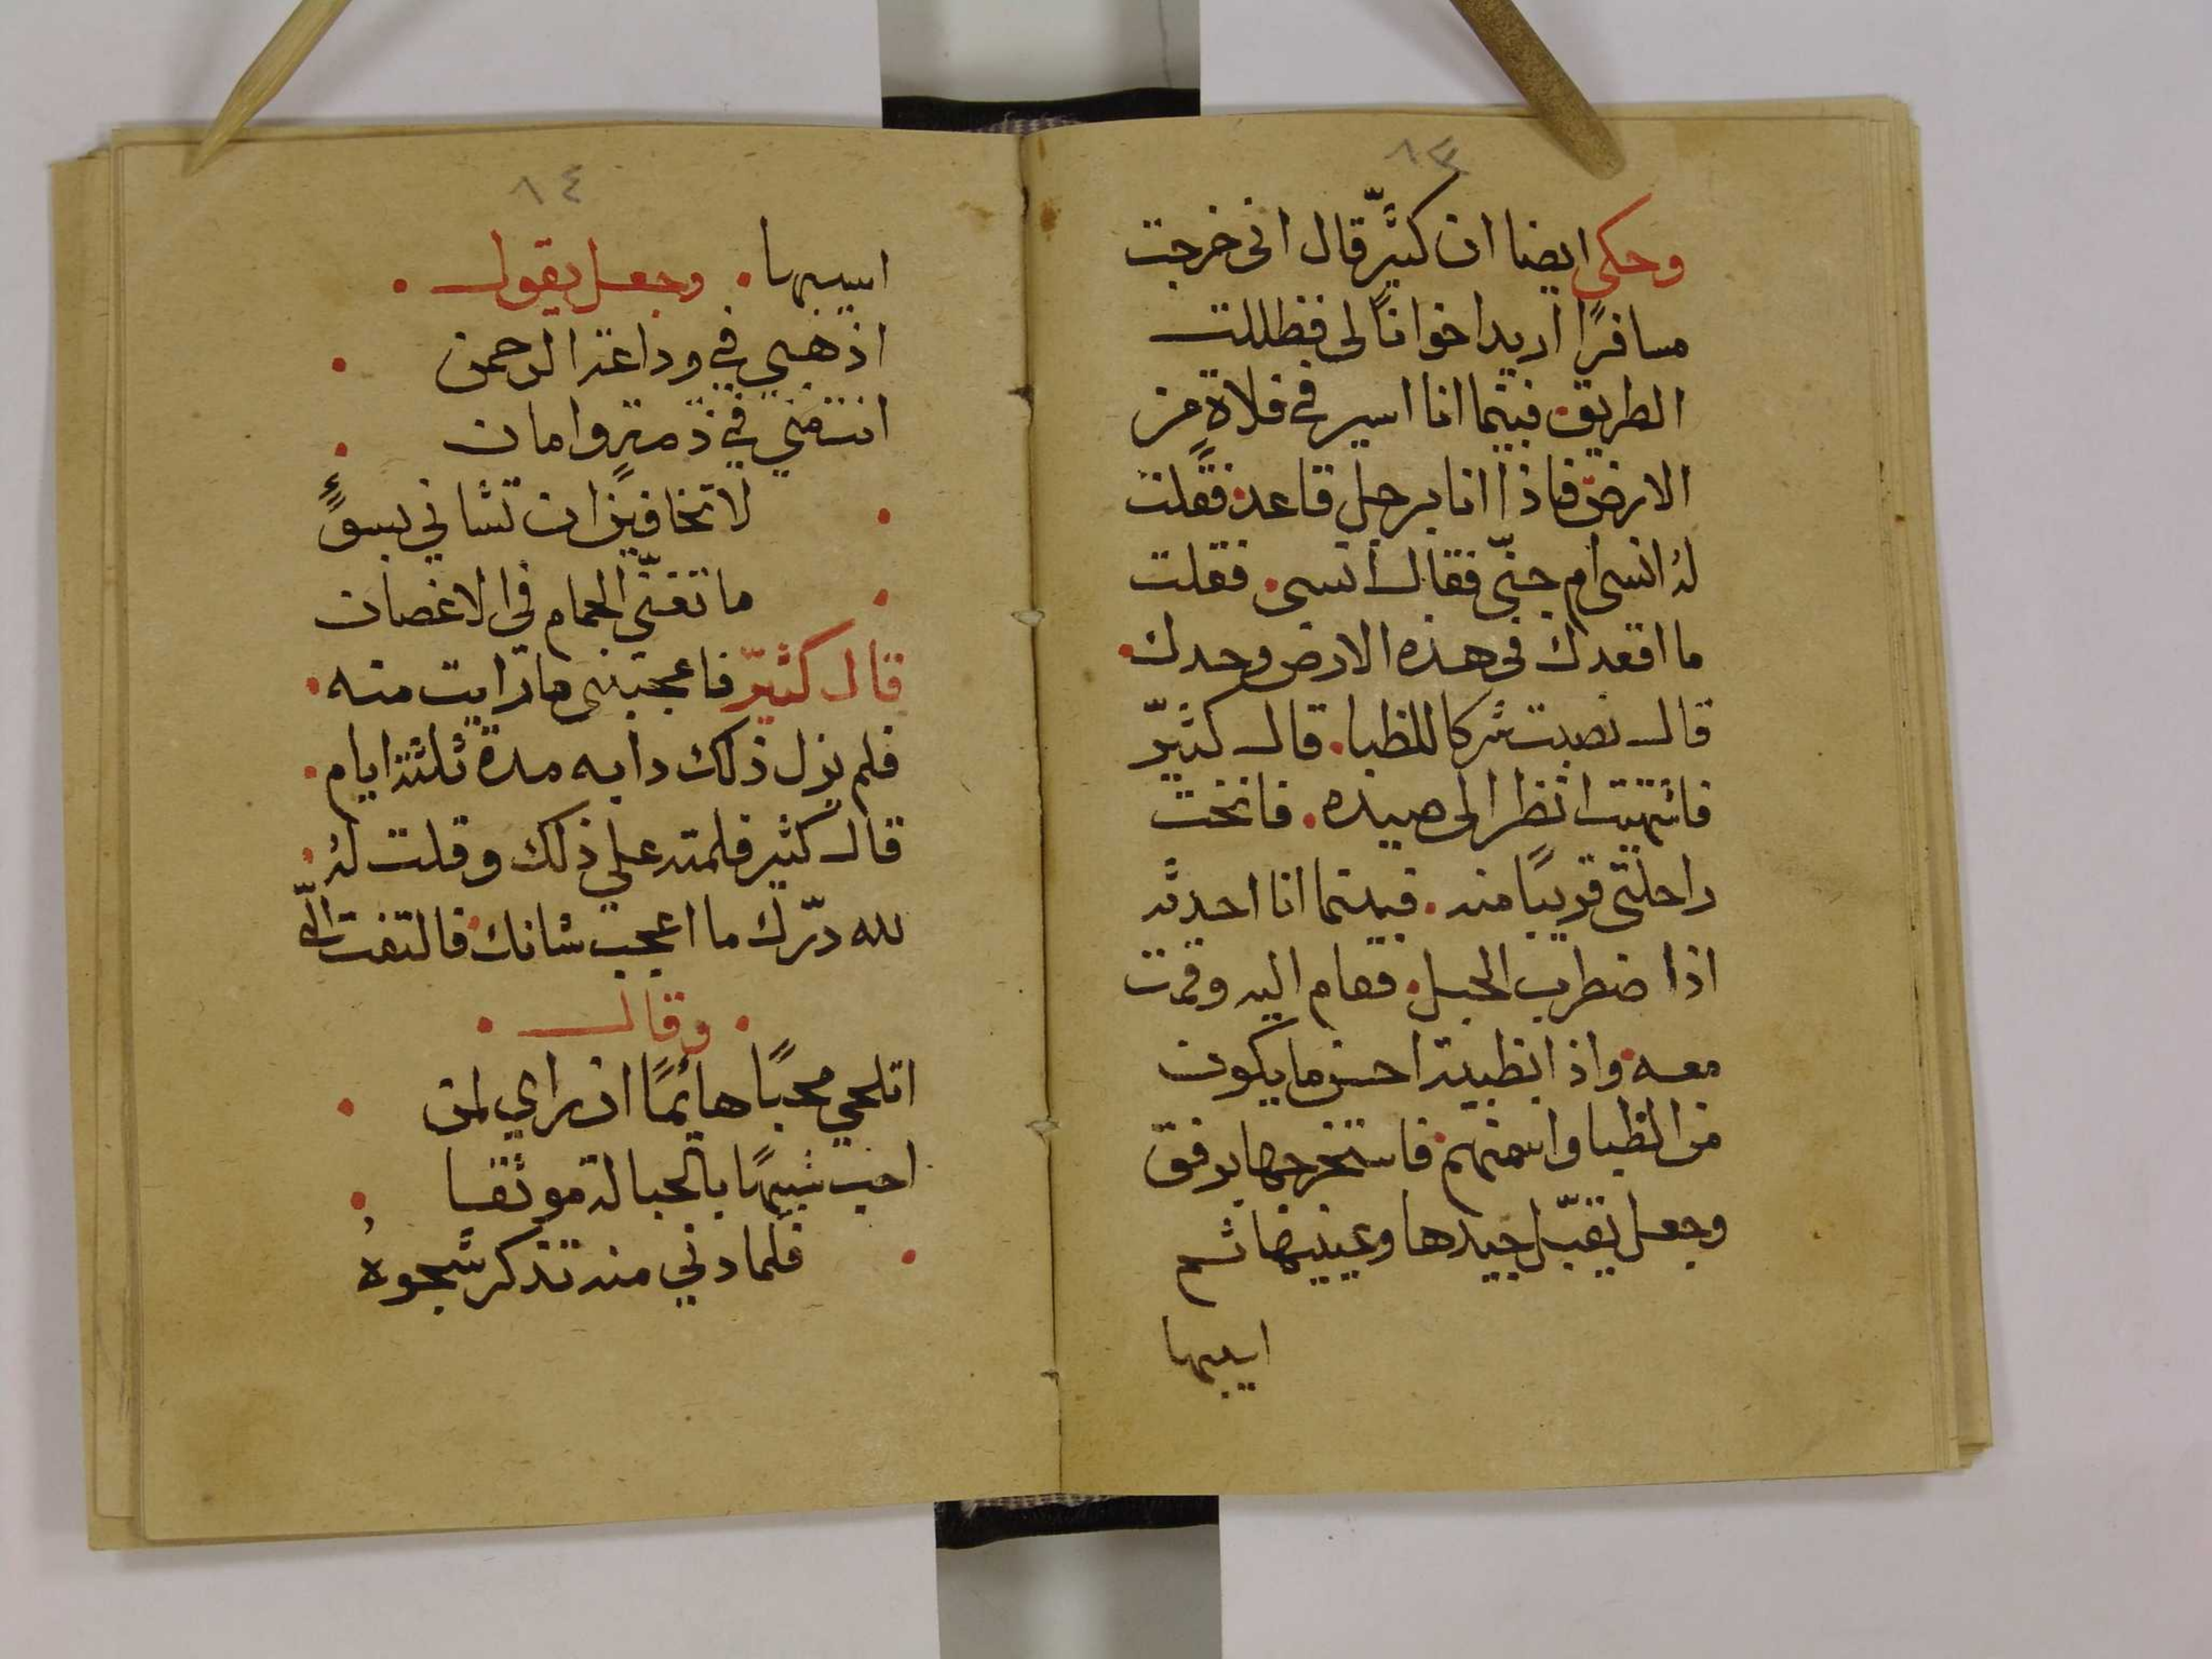 ٨٣
وحكى ايضا ان كثيّر قال انى خرجت
مسافرًا اريد اخوانًا لى فظللت
الطريق. فبينما انا اسير فى فلاةٍ من
الارض. فاذا انا برجلٍ قاعد. فقلت
لهُ انسى ام جنّى فقال انسى. فقلت
ما اقعدك فى هذه الارض وحدك.
قال نصبت شركا للظبا. قال كثيّر
فاشتهيت انظر الى صيده. فانخت
راحلتى قريبًا منه. فبينما انا احدثه
اذا ضطرب الحبل. فقام اليه وقمت
معه. واذا بظبية احسن ما يكون
من الظبا واسمنهم. فاستخرجها برفق
وجعل يقبّل جيدها وعينيها ثم
ايسبها
٨٤
ايسبها. وجعل يقول.
اذهبي في وداعة الرحمن.
انت مني في ذمةٍ وامان.
لا تخافين ان تشاني بسوءٍ.
ما تغنّي الحمام في الاغصان.
قال كثيّر فاعجبنى ما رايت منه.
فلم يزل ذلك دابه مدة ثلثة ايام.
قال كثير فلمته علي ذلك وقلت لهُ.
لله درّك ما اعجب شانك. فالتفت اليّ
. وقال .
اتلحي محبًا هايمًا ان راي لمن.
احب شبيهًا بالحبالة موثقا.
فلما دني منه تذكر شجوهُ.